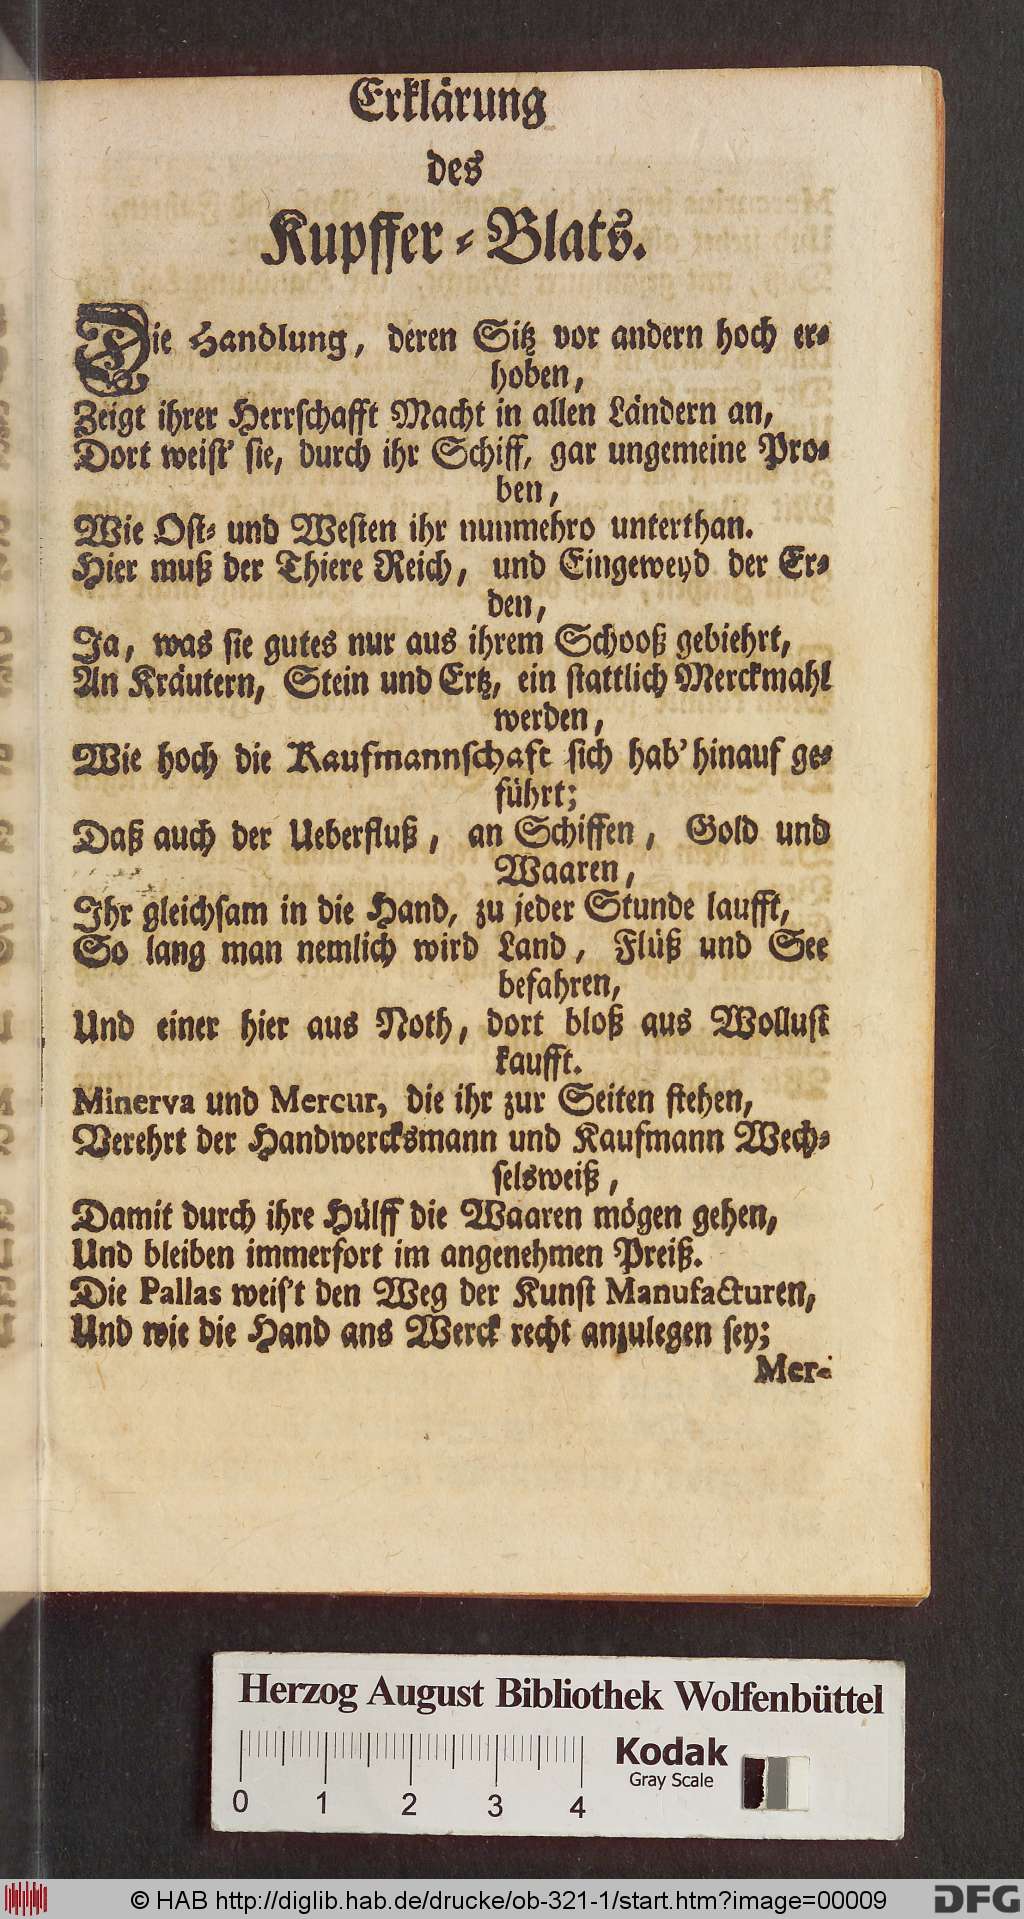 Erklärung
des
Kupffer-Blats.
Die Handlung, deren Sitz vor andern hoch er-
hoben,
Zeigt ihrer Herrschafft Macht in allen Ländern an,
Dort weist' sie, durch ihr Schiff, gar ungemeine Pro-
ben,
Wie Ost- und Westen ihr nunmehro unterthan.
Hier muß der Thiere Reich, und Eingeweyd der Er-
den,
Ja, was sie gutes nur aus ihrem Schooß gebiehrt,
An Kräutern, Stein und Ertz, ein stattlich Merckmahl
werden,
Wie hoch die Kaufmannschaft sich hab' hinauf ge-
führt;
Daß auch der Ueberfluß, an Schiffen, Gold und
Waaren,
Ihr gleichsam in die Hand, zu jeder Stunde laufft,
So lang man nemlich wird Land, Flüß und See
befahren,
Und einer hier aus Noth, dort bloß aus Wollust
kaufft.
Minerva und Mercur, die ihr zur Seiten stehen,
Verehrt der Handwercksmann und Kaufmann Wech-
selsweiß,
Damit durch ihre Hülff die Waaren mögen gehen,
Und bleiben immerfort im angenehmen Preiß.
Die Pallas weis't den Weg der Kunst Manufacturen,
Und wie die Hand ans Werck recht anzulegen sey;
Mer-
Herzog August Bibliothek Wolfenbüttel
Kodak
Gray Scale
0 1 2 3 4
© HAB http://diglib.hab.de/drucke/ob-321-1/start.htm?image=00009
DFG